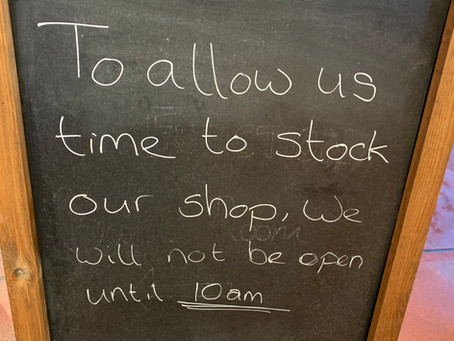 To allow us
time to stock
our shop, We
will not be open
until 10am